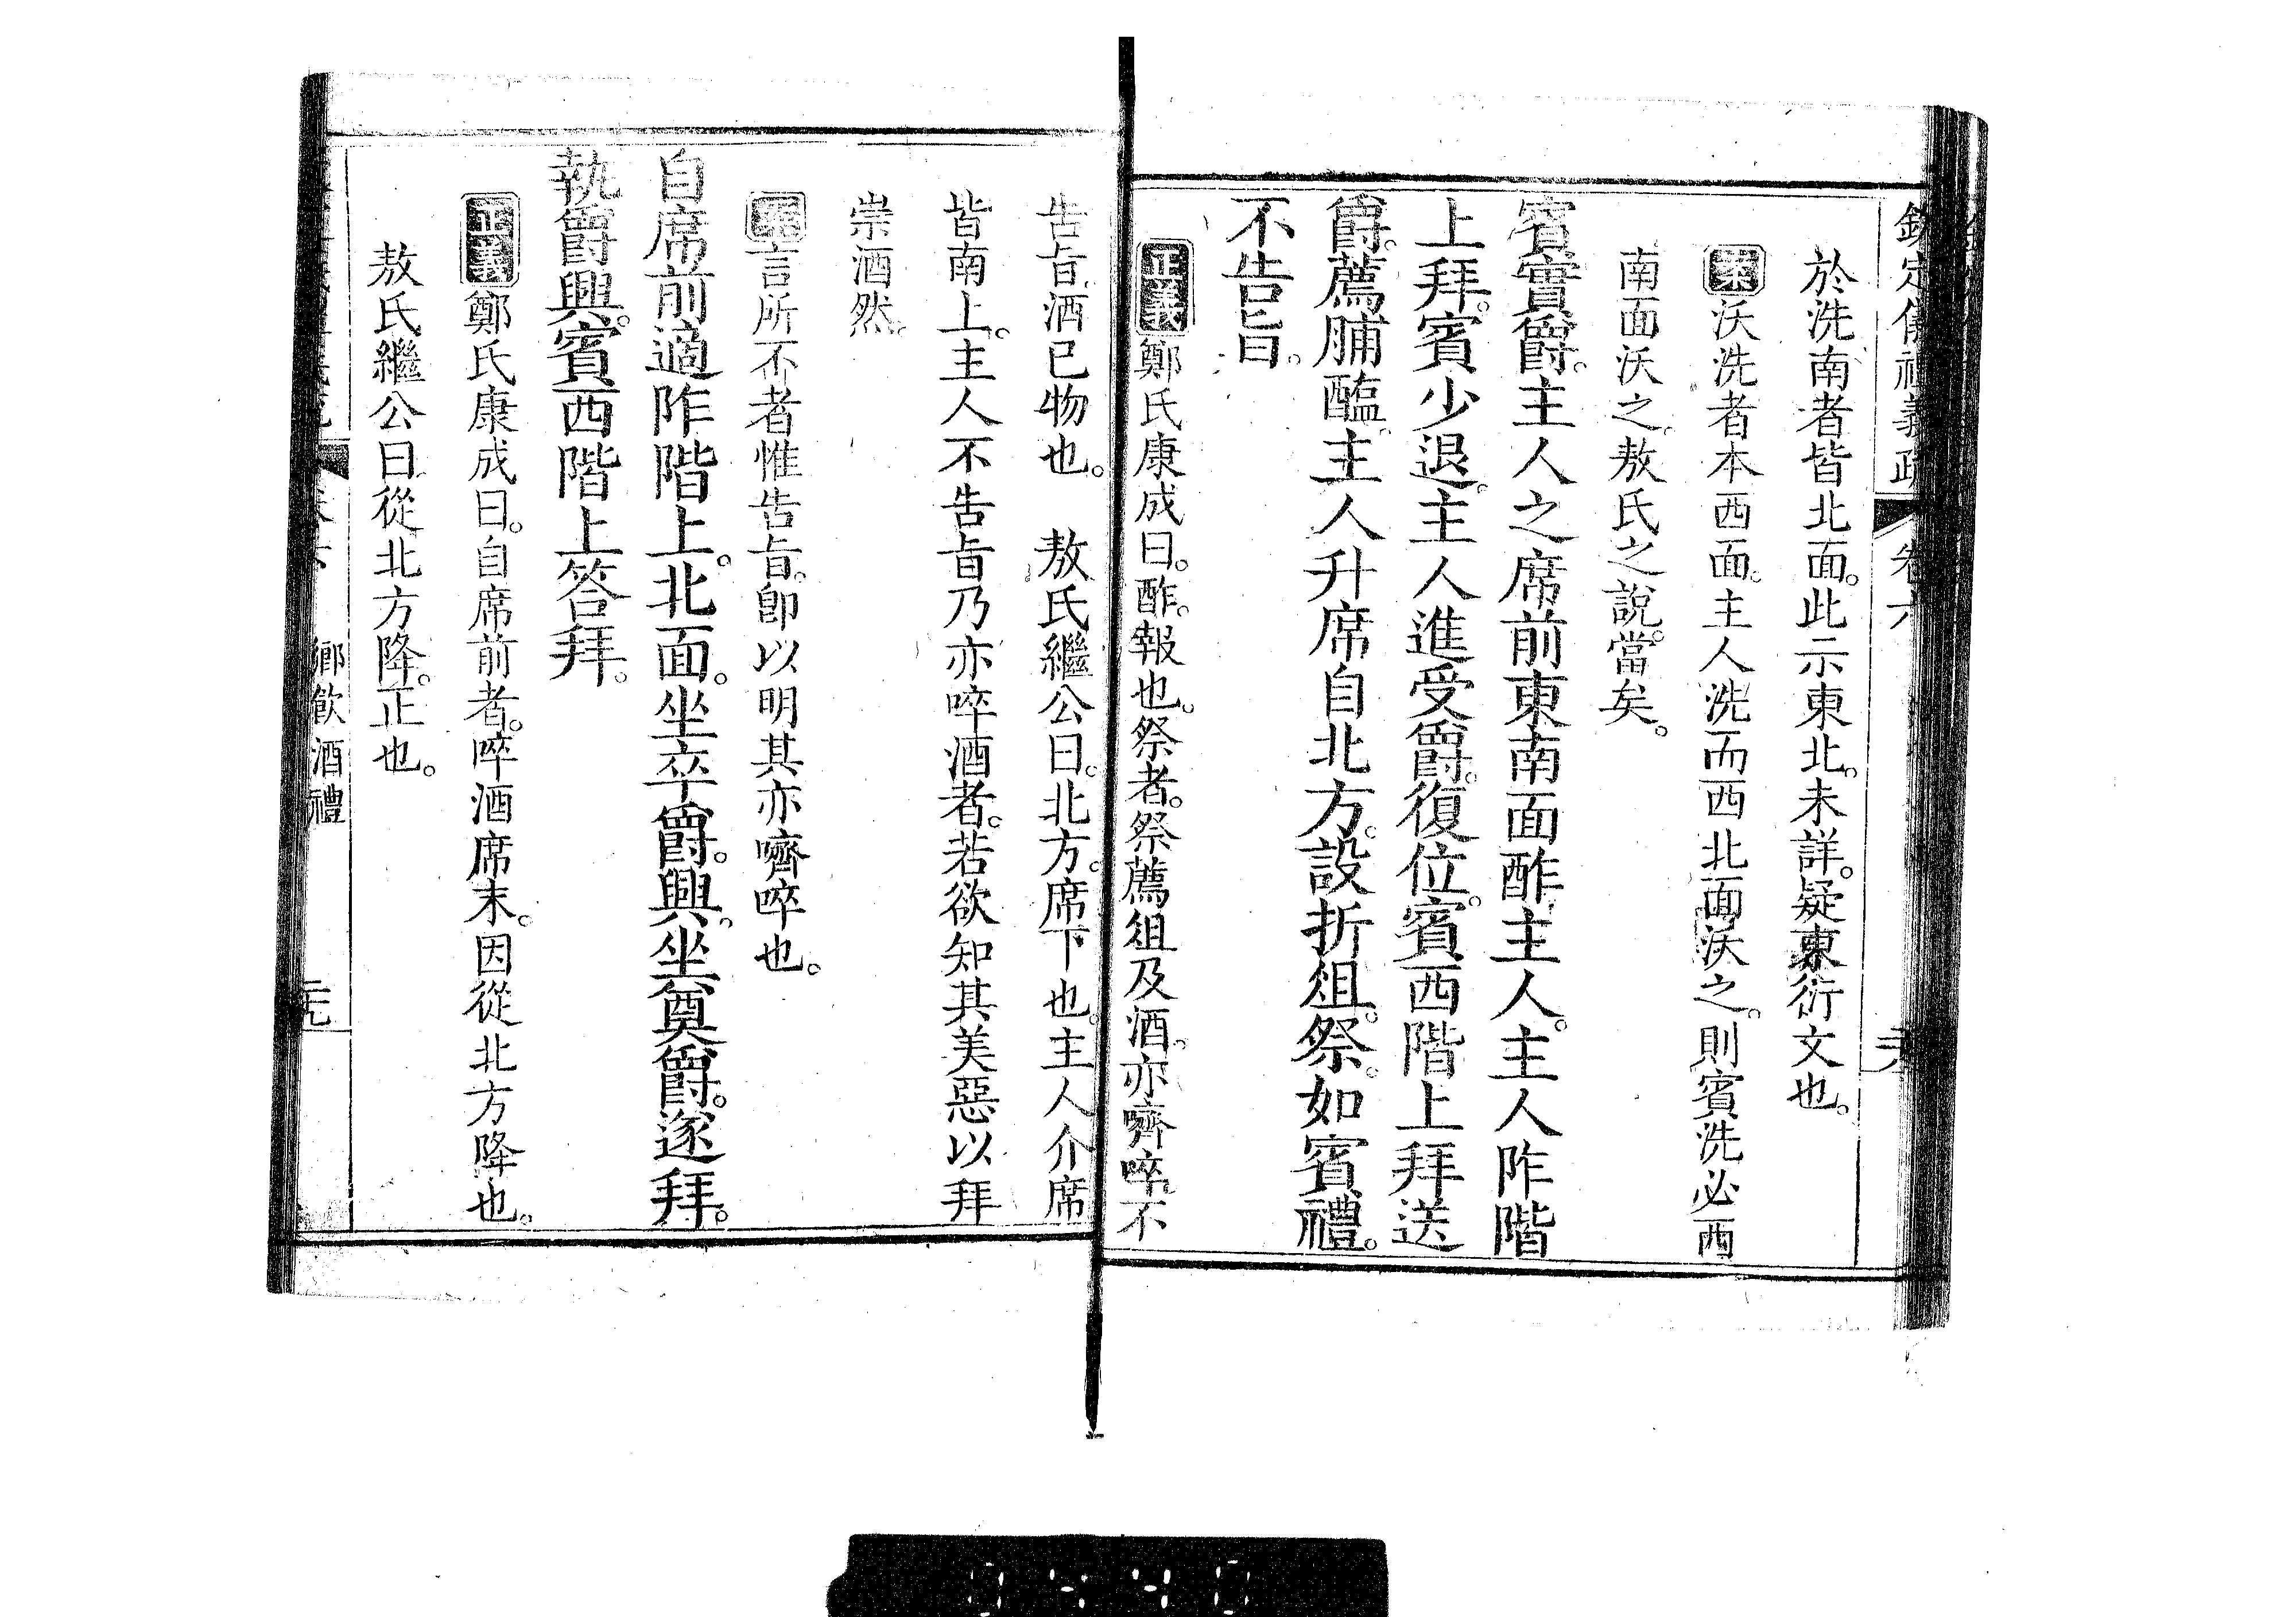 欽定儀禮義疏 卷六
於洗南者皆北面。此示東北。未詳。疑東衍文也。
案沃洗者本西面。主人洗而西北面沃之。則賓洗必西
南面沃之。敖氏之說。當矣。
賓實爵。主人之席前東南面酢主人。主人阼階
上拜。賓少退。主人進受爵。復位。賓西階上拜送
爵。薦脯醢。主人升席自北方。設折俎。祭如賓禮。
不告旨。
正義鄭氏康成曰。酢。報也。祭者。祭薦俎及酒。亦嚌啐。不
告旨。酒已物也。 敖氏繼公曰。北方。席下也。主人介席
皆南上。主人不告旨乃亦啐酒者。若欲知其美惡以拜
崇酒然。
案言所不者惟告旨。卽以明其亦嚌啐也。
自席前適阼階上。北面。坐卒爵。興。坐奠爵。遂拜。
執爵興。賓西階上答拜。
正義鄭氏康成曰。自席前者。啐酒席末。因從北方降也。
敖氏繼公曰從北方降。正也。
鄉飲酒禮